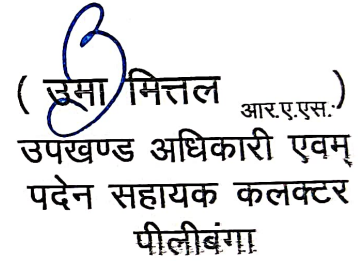 ( उमा मित्तल आर.ए.एस. )
उपखण्ड अधिकारी एवम्
पदेन सहायक कलक्टर
पीलीबंगा